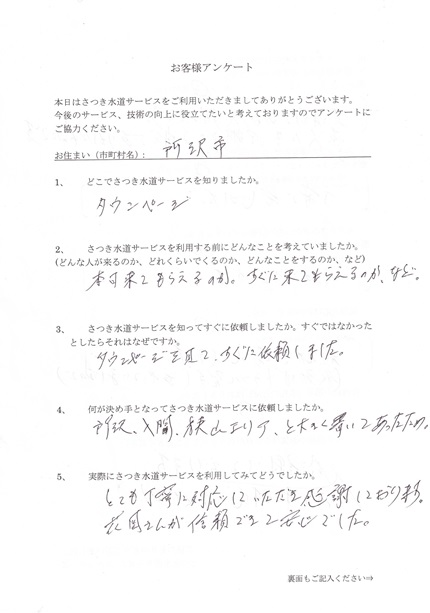 お客様アンケート
本日はさつき水道サービスをご利用いただきましてありがとうございます。
今後のサービス、技術の向上に役立てたいと考えておりますのでアンケートに
ご協力ください。
お住まい（市町村名）： 所沢市
1、 どこでさつき水道サービスを知りましたか。
タウンページ
2、 さつき水道サービスを利用する前にどんなことを考えていましたか。
(どんな人が来るのか、どれくらいでくるのか、どんなことをするのか、など)
本当に来てもらえるのか。すぐに来てもらえるのか、など。
3、 さつき水道サービスを知ってすぐに依頼しましたか。すぐではなかった
としたらそれはなぜですか。
タウンページを見て、すぐに依頼しました。
4、 何が決め手となってさつき水道サービスに依頼しましたか。
所沢、入間、狭山エリア、と大きく書いてあったため。
5、 実際にさつき水道サービスを利用してみてどうでしたか。
とても丁寧に対応していただき感謝しております。
さんが信頼できて安心でした。
裏面もご記入ください⇒